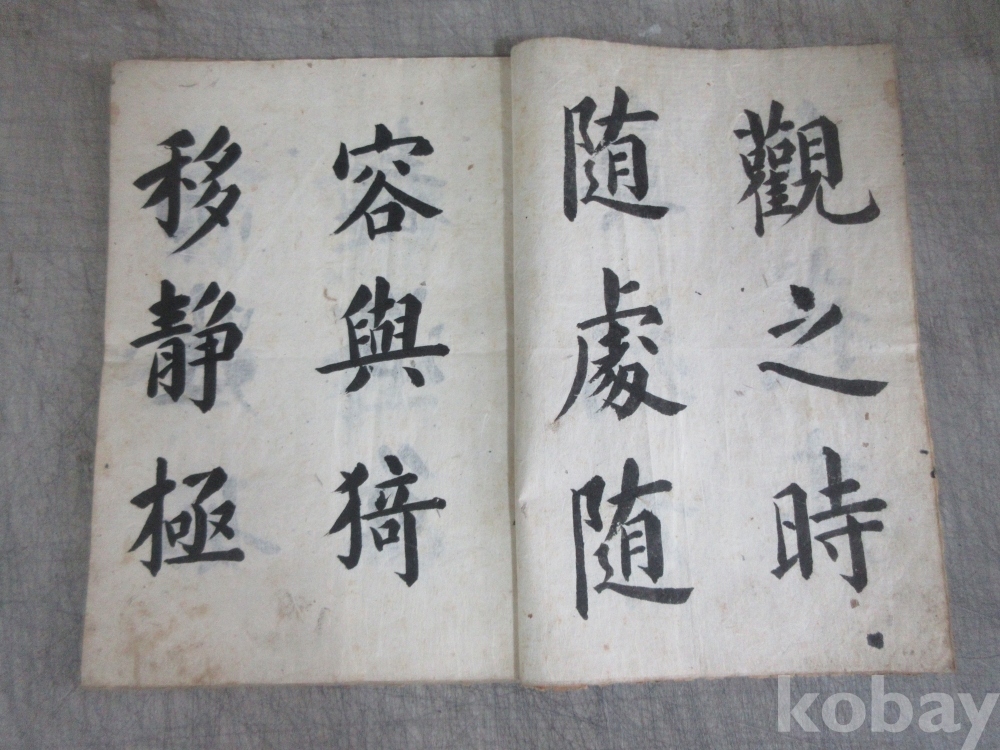 觀之時
随處随
容與猗
移静極
kobay